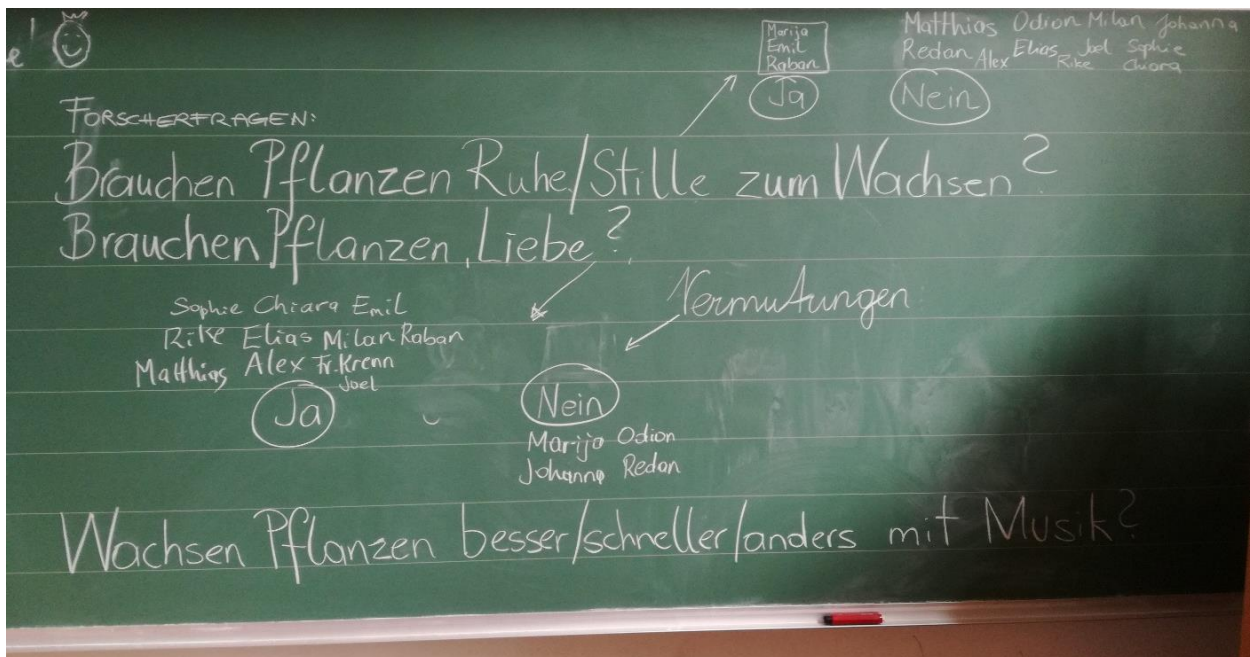 e!
Marija
Emil
Raban
Ja
Matthias Odion Milan Johanna
Redan Alex Elias Rike Joel Sophie
Chiara
Nein
FORSCHERFRAGEN:
Brauchen Pflanzen Ruhe/Stille zum Wachsen?
Brauchen Pflanzen Liebe?
Vermutungen
Sophie Chiara Emil
Rike Elias Milan Raban
Matthias Alex Fr. Krenn
Joel
Ja
Nein
Marija Odion
Johanna Redan
Wachsen Pflanzen besser/schneller/anders mit Musik?